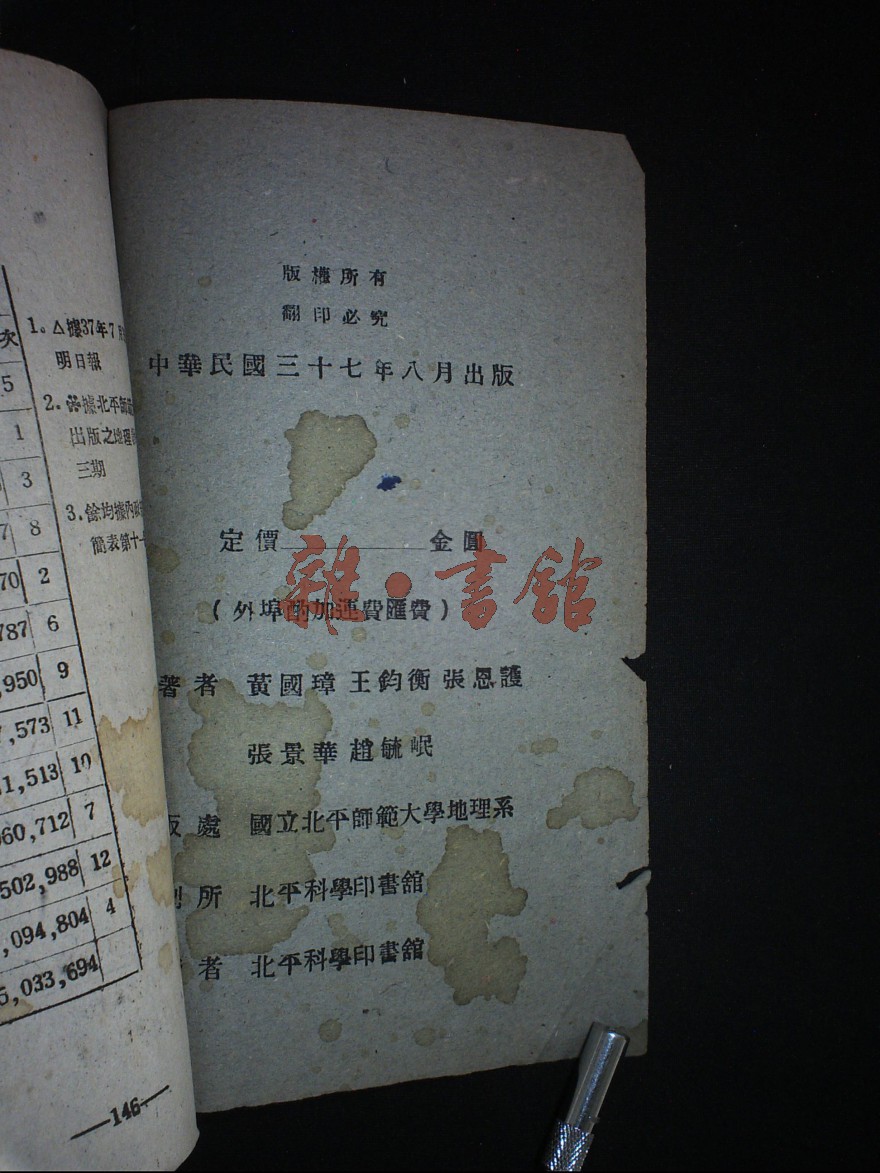 次
5
1
3
7 8
70 2
787 6
,950 9
7,573 11
1,513 10
60,712 7
502,988 12
,094,804 4
5,033,694
1。△據37年7月
明日報
2.※據北平師
出版之地理
三期
3.餘均據內政
簡表第十一
—146—
版權所有
翻印必究
中華民國三十七年八月出版
定價 金圓
(外埠酌加運費匯費)
著者 黃國璋 王鈞衡 張恩護
張景華 趙毓岷
處 國立北平師範大學地理系
所 北平科學印書舘
者 北平科學印書舘
雜·書館